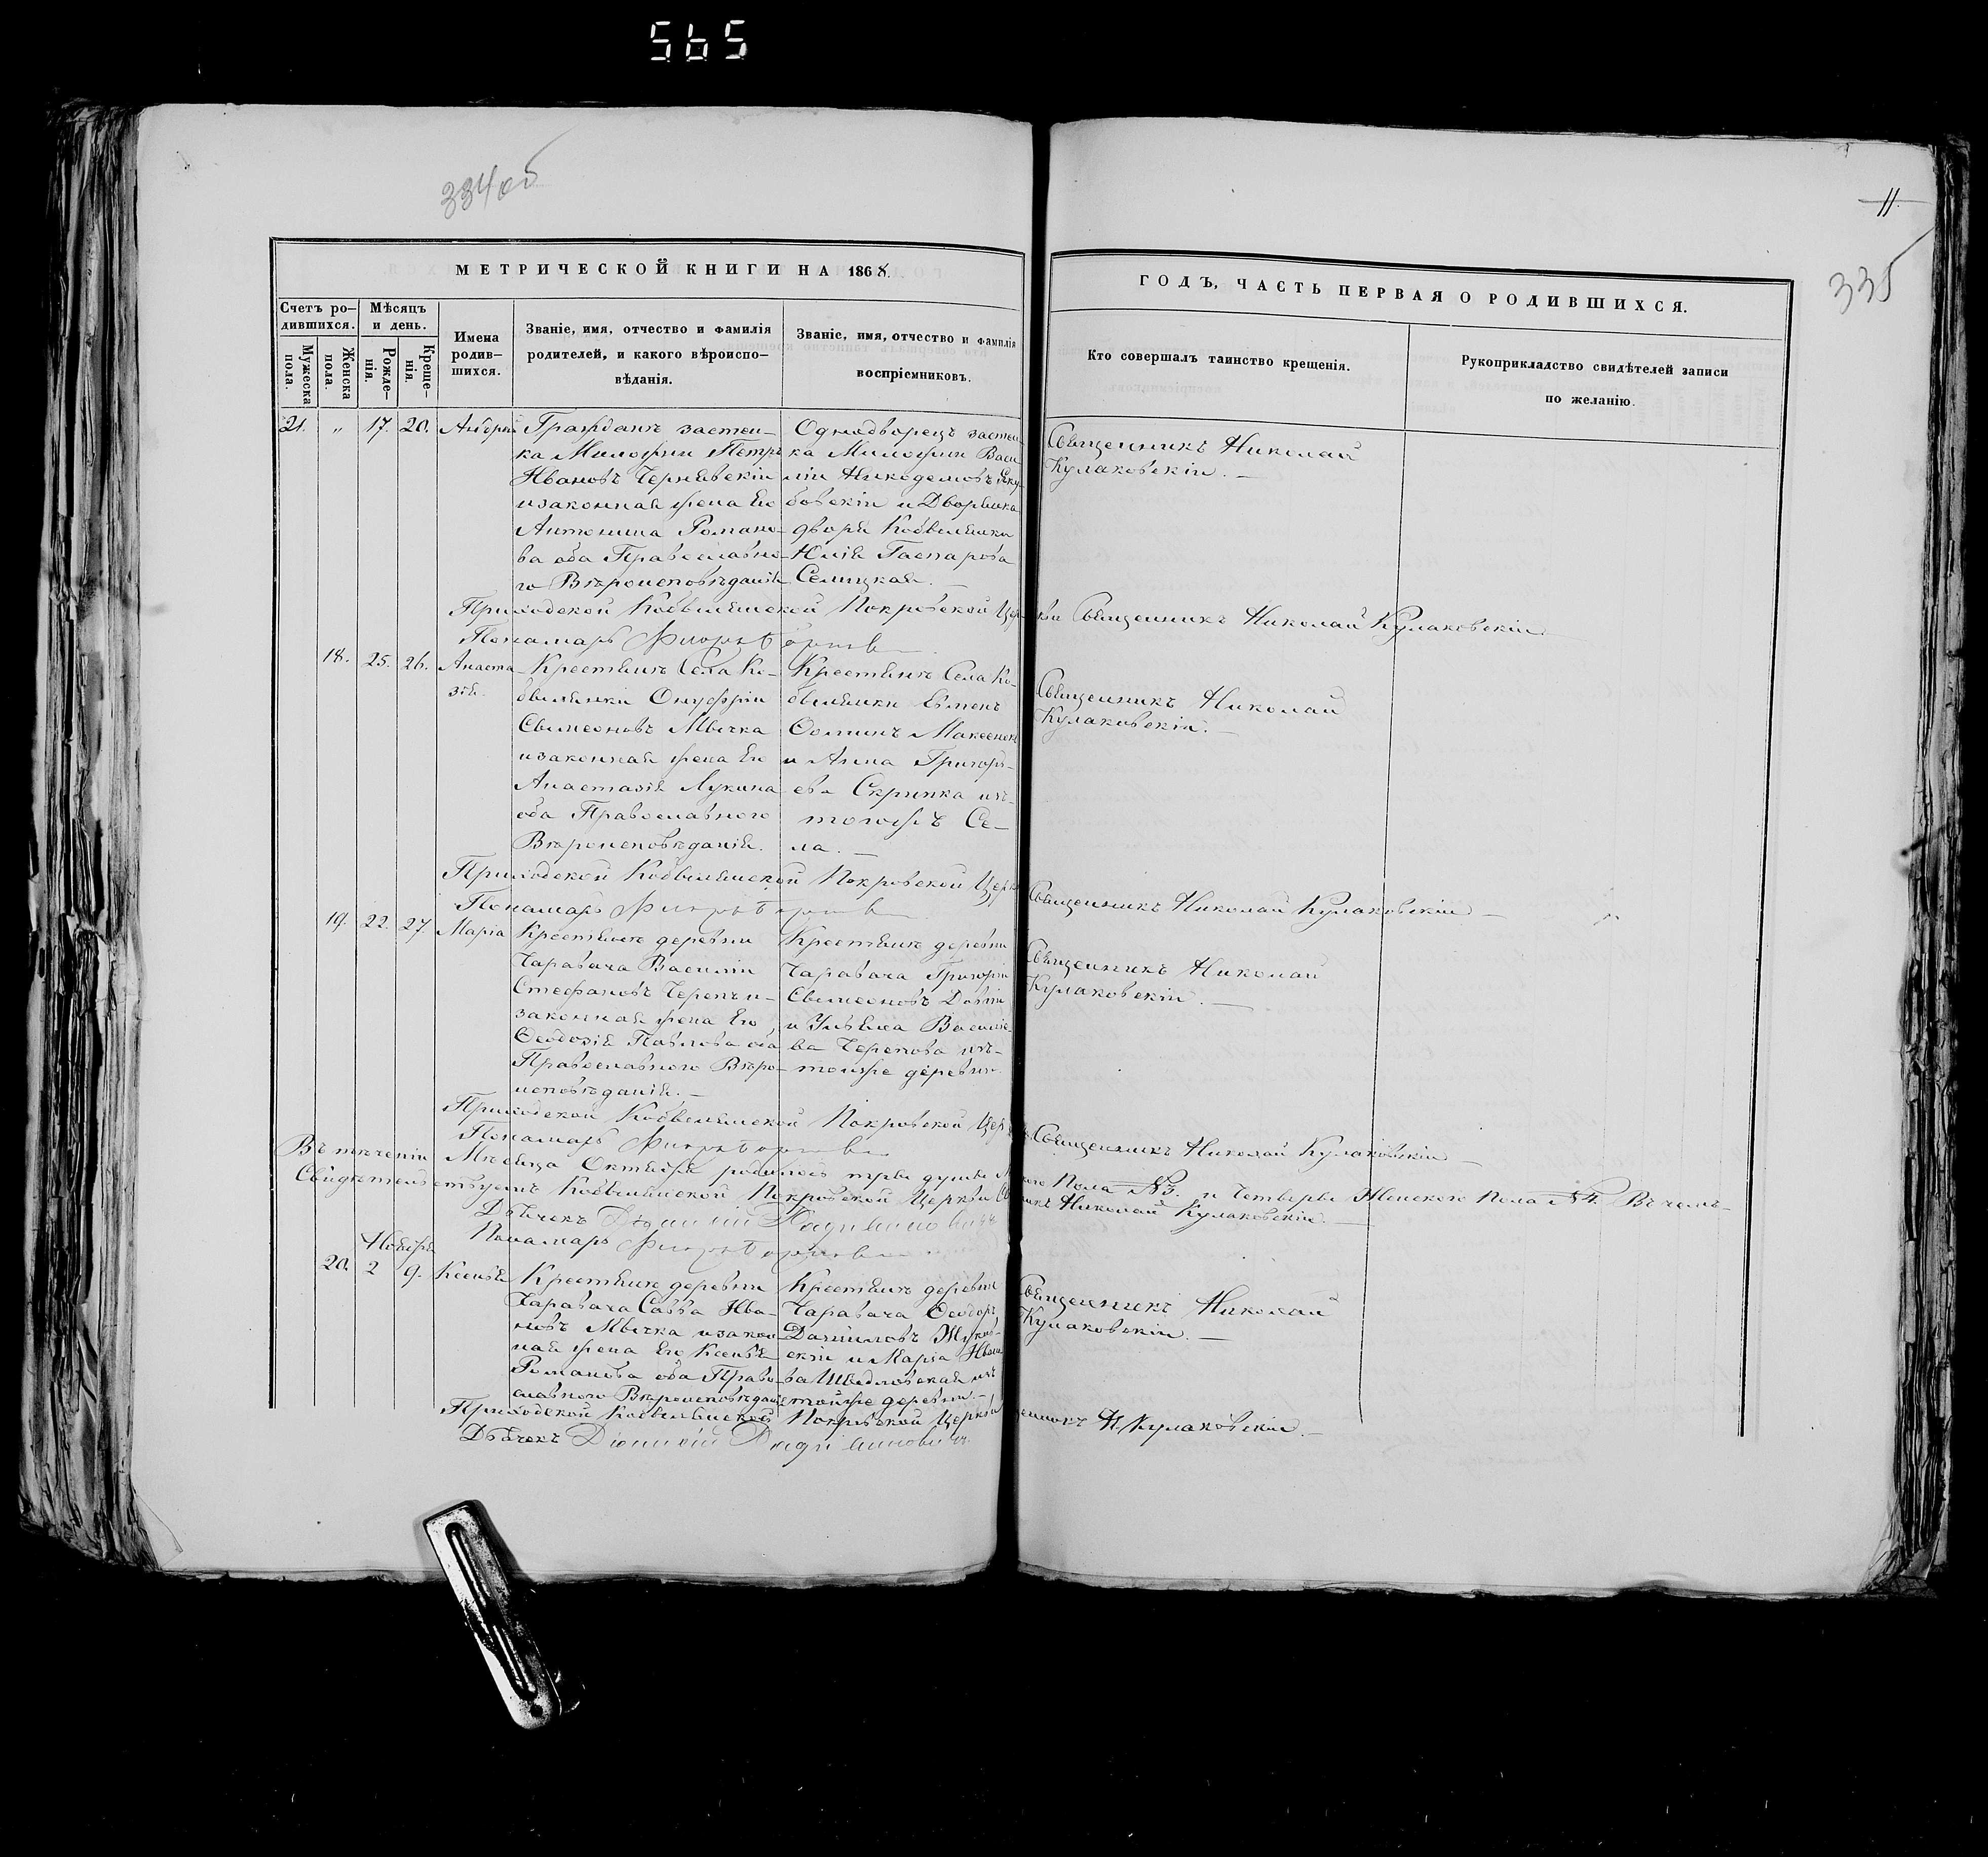 565
334 об
11.
335
МЕТРИЧЕСКОЙ КНИГИ НА 1868.
ГОДЪ, ЧАСТЬ ПЕРВАЯ О РОДИВШИХСЯ.
Счетъ ро-
дившихся.
Мужеска
пола.
Женска
пола.
Мѣсяцъ
и день.
Рожде-
нія.
Креще-
нія.
Имена
родив-
шихся.
Званіе, имя, отчество и фамилія
родителей, и какого вѣроиспо-
вѣданія.
Званіе, имя, отчество и фамилія
воспріемниковъ.
Кто совершалъ таинство крещенія.
Рукоприкладство свидѣтелей записи
по желанію.
21. „ 17. 20. Андрей
Гражданъ застен-
ка Милофии Петръ
Ивановъ Чернявскій
и законная жена Его
Антонина Романо-
ва оба Православна-
го Вѣроисповѣданія
Однодворецъ застен-
ка Милофии Васи
лій Никодимовъ
бовскій и Дворянка
двора Кобыльянки
Юлія Гаспарова
Селицкая.
Священникъ Николай
Кулаковскій.
Приходской Кобыльянской Покровской Церкви Священникъ Николай Кулаковскій
Пономарь
18. 25. 26. Анаста
зія.
Крестьянъ Села Ко-
быльянки Онуфрій
Свимеоновъ Мычка
и законная жена Его
Анастазія Лукина
оба Православного
Вѣроисповѣданія.
Крестьянъ Села Ко-
быльянки Еѵменъ
Ѳоминъ Максенюкъ
и Анна Григорь-
ева Скрипка изъ
тогожъ Се-
ла.
Священникъ Николай
Кулаковскій.
Приходской Кобыльянской Покровской Церкви Священникъ Николай Кулаковскій
Пономарь
19. 22. 27. Марія
Крестьянъ деревни
Чаравача Василій
Стефановъ Черепъ и
законная жена Его
Ѳеодозія Павлова оба
Православного Вѣро-
исповѣданія.
Крестьянъ деревни
Чаравача Григорій
Свимеоновъ
и Ульяна Василіе-
ва Черепова изъ
тойже деревни.
Священникъ Николай
Кулаковскій.
Приходской Кобыльянской Покровской Церкви Священникъ Николай Кулаковскій
Пономарь
Въ теченіи Мѣсяца Октября родилось три души Мужского Пола №3. и Четверы Женского Пола №4. Въ чемъ
Свидѣтельствуемъ Кобыльянской Покровской Церкви Священникъ Николай Кулаковскій.
Дьячекъ Діонисій
Пономарь
Ноября
20. 2 9. Ксенья
Крестьянъ деревни
Чаравача Савва Ива-
новъ Мычка и закон-
ная жена Его Ксенья
Романова оба Право-
славного Вѣроисповѣданія
Крестьянъ деревни
Чаравача Ѳеодоръ
Даниловъ Жуков-
скій и Марія Ивано-
ва Шидловская изъ
тойже деревни.
Священникъ Николай
Кулаковскій.
Приходской Кобыльянской Покровской Церкви Священникъ Н. Кулаковскій.
Дьячекъ Діонисій